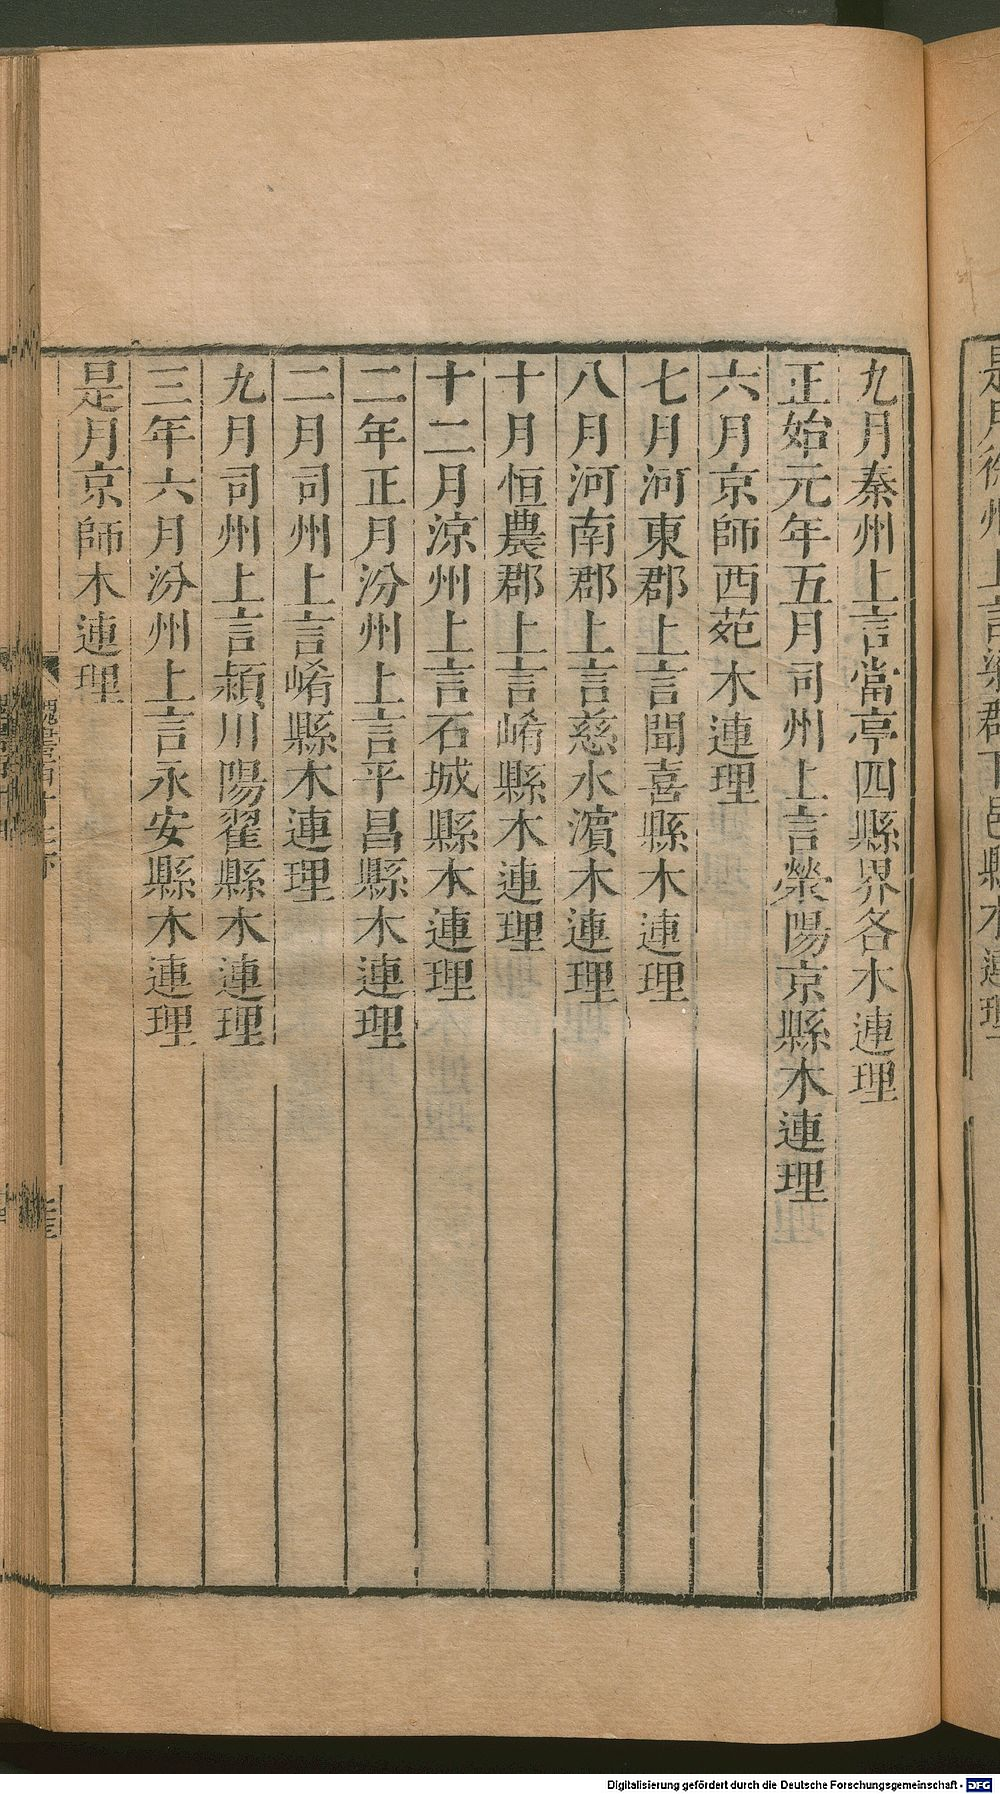 九月秦州上言當亭四縣界各木連理
正始元年五月司州上言滎陽京縣木連理
六月京師西苑木連理
七月河東郡上言聞喜縣木連理
八月河南郡上言慈水濵木連理
十月恒農郡上言崤縣木連理
十二月涼州上言石城縣木連理
二年正月汾州上言平昌縣木連理
二月司州上言崤縣木連理
九月司州上言潁川陽翟縣木連理
三年六月汾州上言永安縣木連理
是月京師木連理
Digitalisierung gefördert durch die Deutsche Forschungsgemeinschaft - DFG